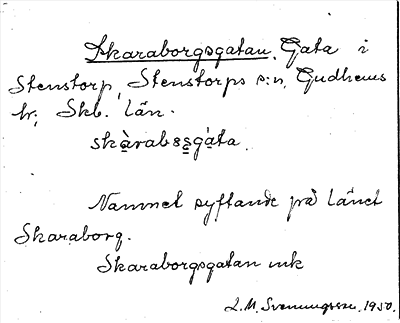 Skaraborgsgatan. Gata i
Stenstorp, Stenstorps s:n, Gudhems
hr; Skb. län.
skàrabsgáta
Namnet syftande på länet
Skaraborg.
Skaraborgsgatan mk
L.M. Svenungsson. 1950.